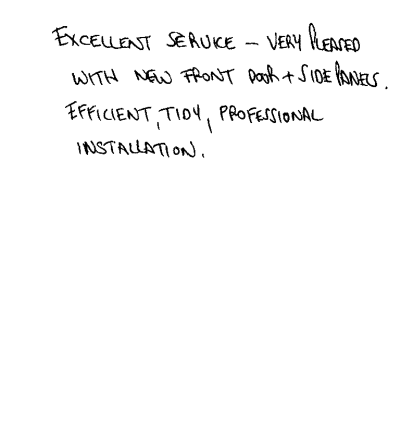 EXCELLENT SERVICE - VERY PLEASED
WITH NEW FRONT DOOR + SIDE PANELS.
EFFICIENT, TIDY, PROFESSIONAL
INSTALLATION.